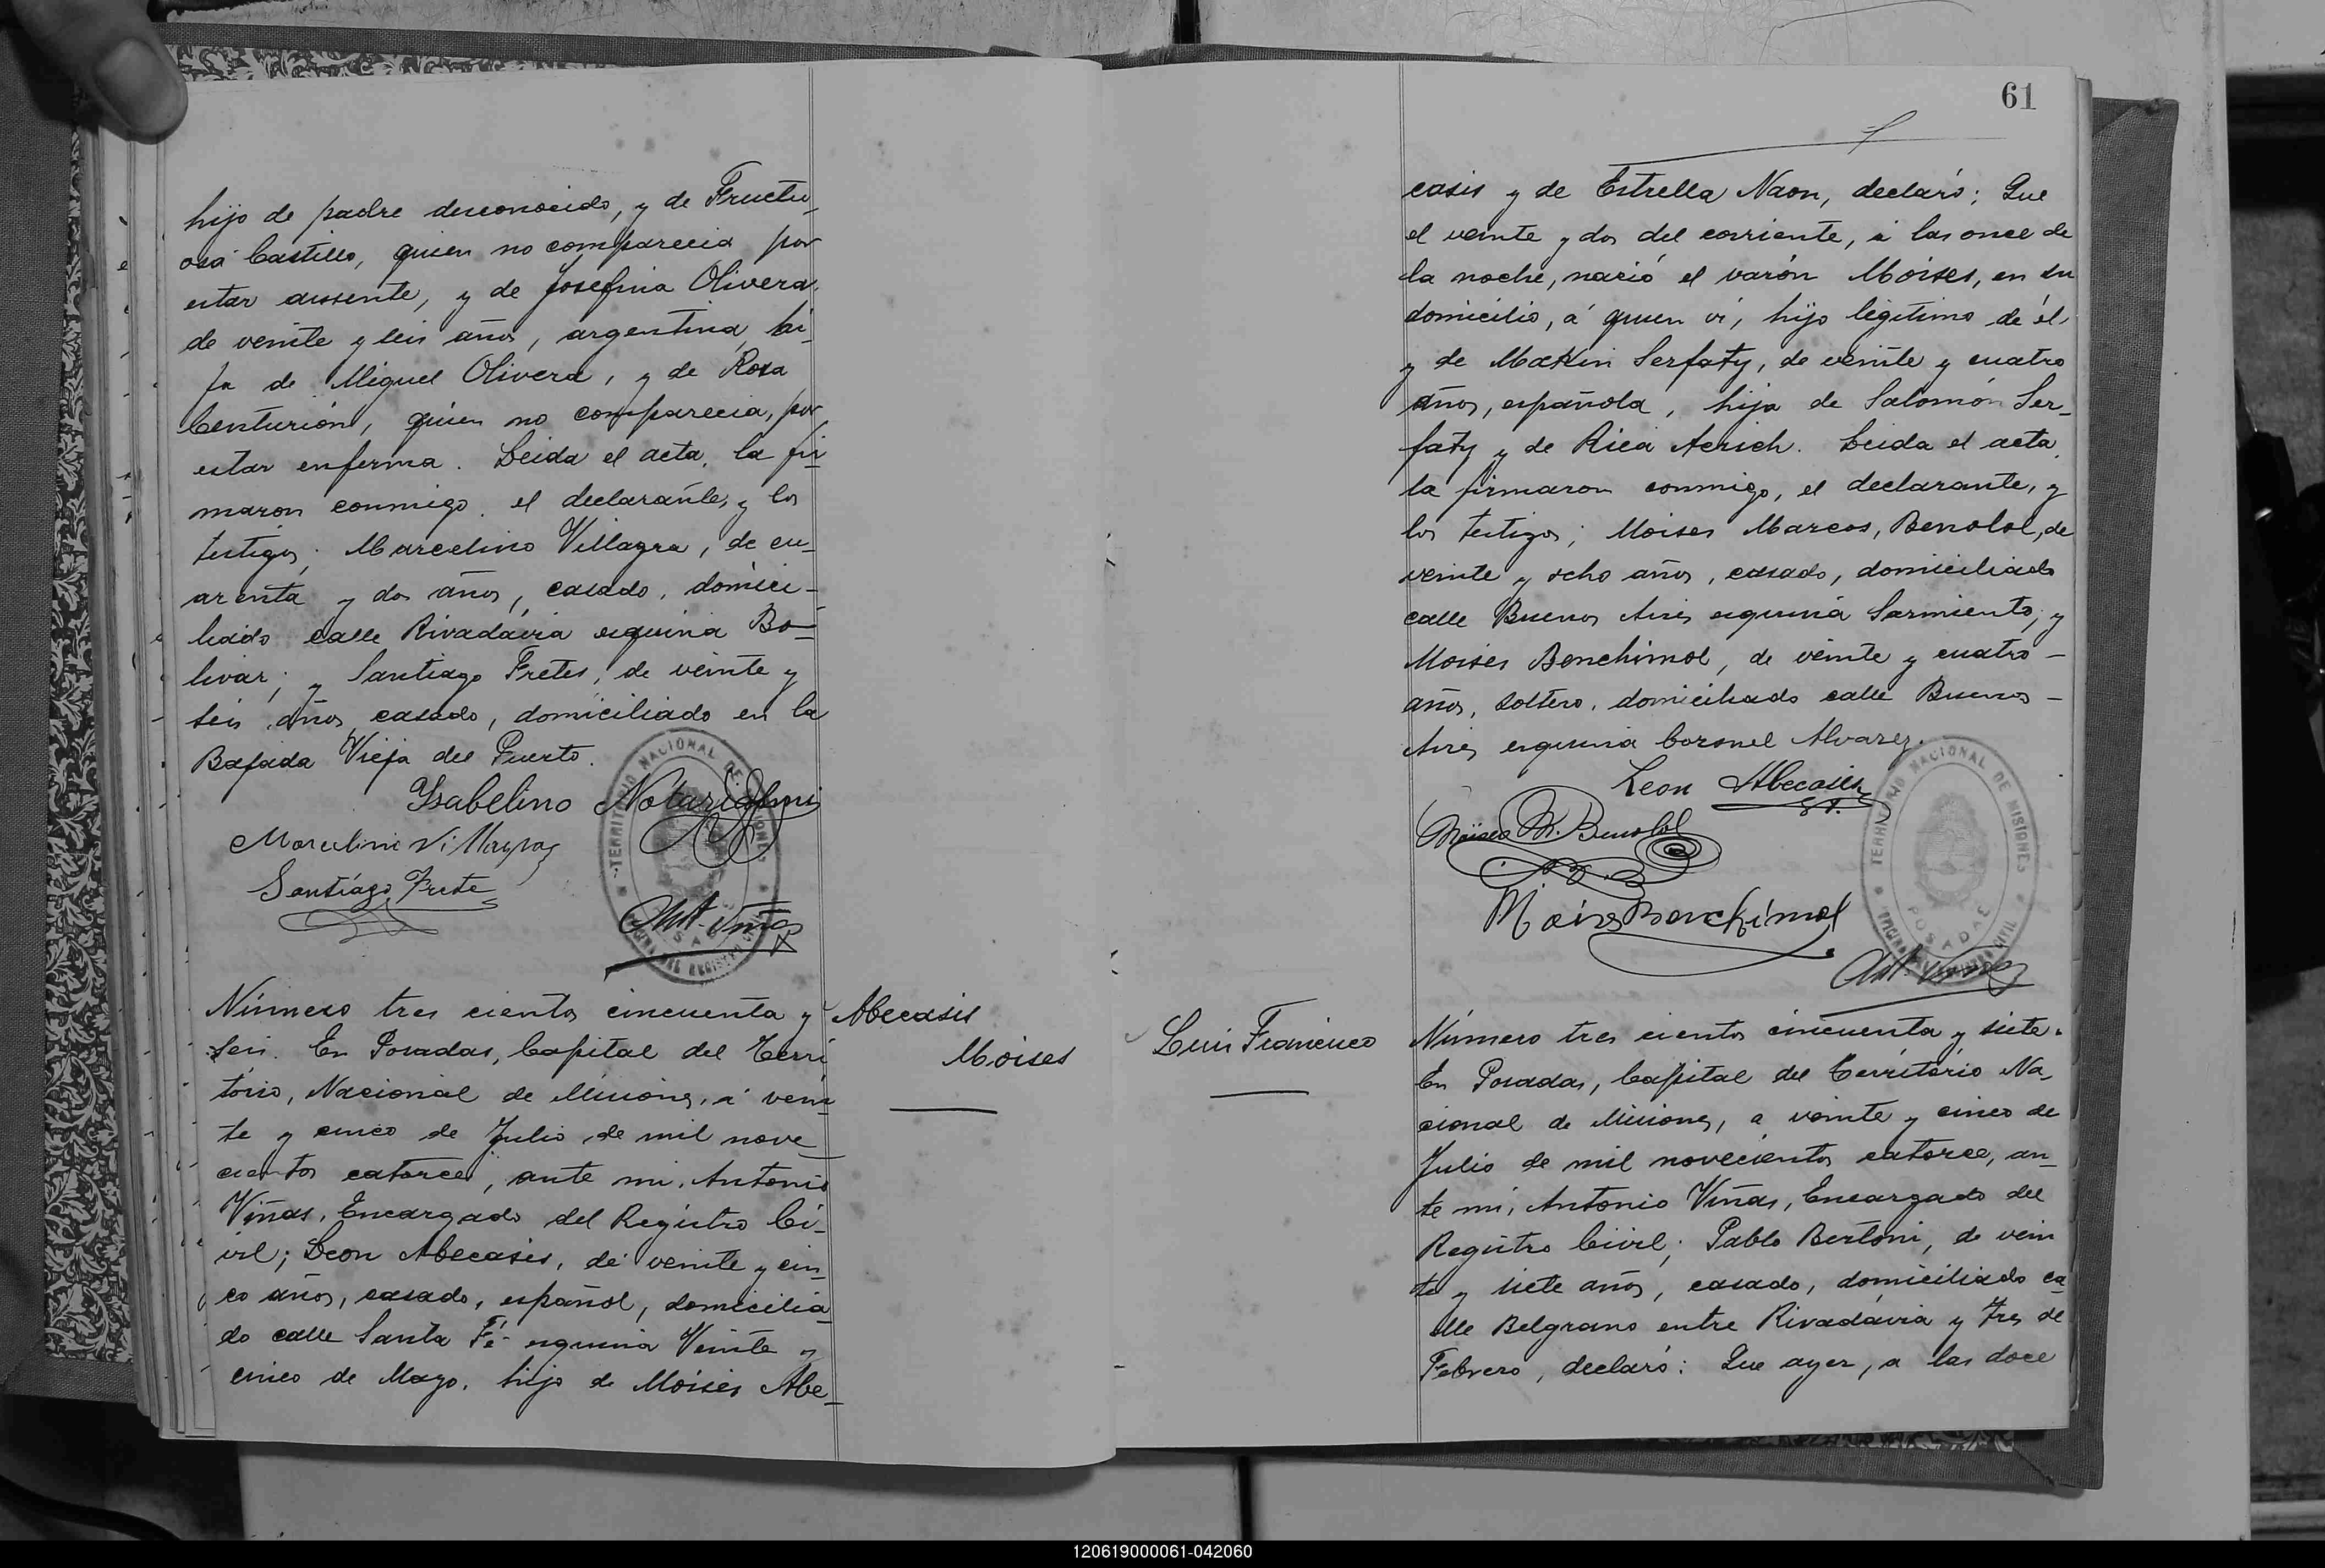 hijo de padre desconocido, y de Fructu-
osa Castillo, quien no comparecia por
estar aussente, y de Josefina Olivera,
de veinte y seis años, argentina, hi-
ja de Miguel Olivera, y de Rosa
Centurión, quien no comparecia, por
estar enferma. Leida el acta, la fir-
maron conmigo, el declarante, y los
testigos; Marcelino Villagra, de cu-
arenta y dos años, casado, domici-
liado calle Rivadavia esquina Bo-
livar; y Santiago Fretes, de veinte y
seis años, casado, domiciliado en la
Bajada Vieja del Puerto.
Ysabelino
Marcelino Villagra
Santiago Frete
Ant. Viñas
TERRITORIO NACIONAL DE MISIONES
Número tres cientos cincuenta y
seis. En Posadas, Capital del Terri
torio, Nacional de Misiones, á vein-
te y cinco de Julio de mil nove-
cientos catorce, ante mi, Antonio
Viñas, Encargado del Registro Ci-
vil; Leon Abecasis, de veinte y cin-
co años, casado, español, domicilia-
do calle Santa Fé esquina Veinte y
cinco de Mayo, hijo de Moises Abe-
Abecasis
Moises
61
casis y de Estrella Naon, declaró: Que
el veinte y dos del corriente, á las once de
la noche, nació el varón Moises, en su
domicilio, á quien vi, hijo legitimo de él,
y de Serfaty, de veinte y cuatro
años, española, hija de Salomón Ser-
faty y de Rica Aerich. Leida el acta,
la firmaron conmigo, el declarante, y
los testigos; Moises Marcos, Benolol, de
veinte y ocho años, casado, domiciliado
calle Buenos Aires esquina Sarmiento; y
Moises Benchimol, de veinte y cuatro -
años, soltero, domiciliado calle Buenos -
Aires esquina Coronel Alvarez.
Leon Abecasis
Moises M. Benolol
Moises Benchimol
Ant. Viñas
TERRITORIO NACIONAL DE MISIONES
POSADAS
Luis Francisco
Número tres cientos cincuenta y siete.
En Posadas, Capital del Territorio Na-
cional de Misiones, a veinte y cinco de
Julio de mil novecientos catorce, an-
te mi, Antonio Viñas, Encargado del
Registro Civil; Pablo Bertoni, de vein
te y siete años, casado, domiciliado ca-
lle Belgrano entre Rivadavia y tres de
Febrero, declaró: Que ayer, a las doce
120619000061-042060